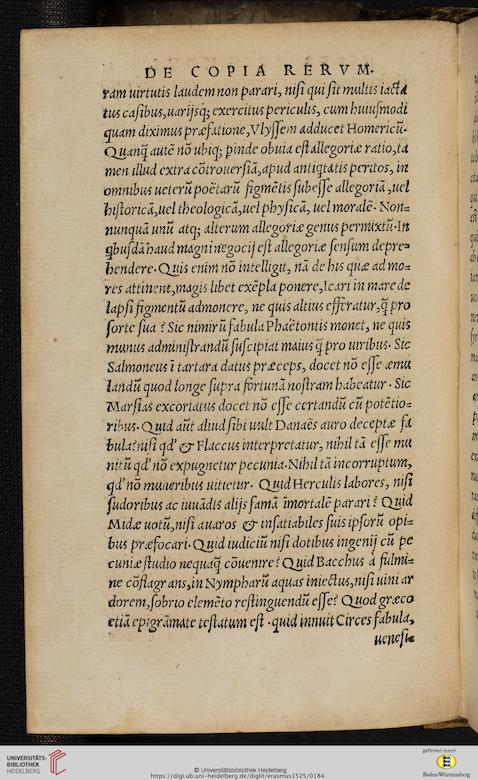 DE COPIA RERVM.
ram uirtutis laudem non parari, nisi qui sit multis iacta
tus casibus, uarijsq; exercitus periculis, cum huiusmodi
quam diximus præfatione, Vlyssem adducet Homericũ.
Quanq̃ autẽ nõ ubiq; pinde obuia est allegoriæ ratio, ta
men illud extra cõtrouersiã, apud antiqtatis peritos, in
omnibus ueterũ poëtarũ figmẽtis subesse allegoriã, uel
historicã, uel theologicã, uel physicã, uel moralẽ. Non=
nunquã unũ atq; alterum allegoriæ genus permixtũ. In
qbusdã haud magni negocij est allegoriæ sensum depre=
hendere. Quis enim nõ intelligit, nã de his quæ ad mo=
res attinent, magis libet exẽpla ponere, Icari in mare de
lapsi figmentũ admonere, ne quis altius efferatur, q̃ pro
sorte sua? Sic nimirũ fabula Phaëtontis monet, ne quis
munus administrandũ suscipiat maius q̃ pro uiribus. Sic
Salmoneus ĩ tartara datus præceps, docet nõ esse æmu
landũ quod longe supra fortunã nostram habeatur. Sic
Marsias excoriatus docet nõ esse certandũ cũ potẽtio=
ribus. Quid aũt aliud sibi uult Danaës auro deceptæ fa
bula? nisi qd' & Flaccus interpretatur, nihil tã esse mu
nitũ qd' nõ expugnetur pecunia. Nihil tã incorruptum,
qd' nõ muneribus uitietur. Quid Herculis labores, nisi
sudoribus ac iuuãdis alijs famã ĩmortalẽ parari? Quid
Midæ uotũ, nisi auaros & insatiabiles suis ipsorũ opi=
bus præfocari. Quid iudiciũ nisi dotibus ingenij cũ pe
cuniæ studio nequaq̃ cõuenire? Quid Bacchus à fulmi=
ne cõflagrans, in Nympharũ aquas iniectus, nisi uini ar
dorem, sobrio elemẽto restinguendũ esse? Quod græco
etiã epigrãmate testatum est. quid innuit Circes fabula,
uenefi=
UNIVERSITÄTS-
BIBLIOTHEK
HEIDELBERG
© Universitätsbibliothek Heidelberg
https://digi.ub.uni-heidelberg.de/diglit/erasmus1525/0184
gefördert durch
Baden-Württemberg